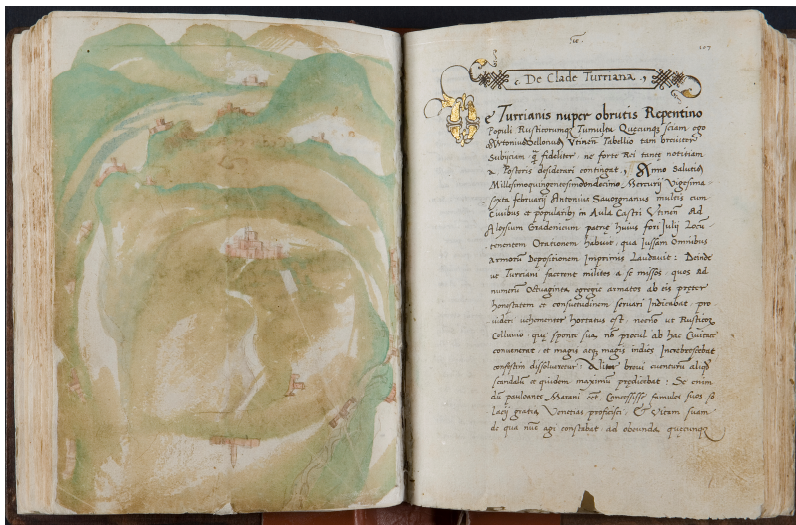 107
De Clade Turriana
De Turrianis nuper obrutis Repentino
Populi Rusticorumq Tumultu Quęcunq sciam ego
Antonius Bellonus Utinen Tabellio tam breuiter
Subijciam q̃ fideliter ne forte Rei tantę notitiam
a Posteris desiderari contingat, Anno Salutis
Millesimoquingentesimoundecimo Mercurij Vigesima
sexta februarij Antonius Sauorgnanus multis cum
Ciuibus et popularibꝫ in Aula Castri Utinen Ad
Aloysium Gradenicum patrię huius fori Julij Locū
tenentem Orationem habuit, qua Jussam Omnibus
Armorū Depositionem Imprimis Laudauit: Deinde
ut Turriani facerent milites a se missos, quos ad
numerū Octuaginta egregie armatos ab eis pręter
honestatem et consuetudinem seruari Indicabat, pro
uideri uehementer hortatus est, necnō ut Rusticoꝝ
Colluuio, quę sponte sua nō procul ab hac Ciuitate
conuenerat, et magis atqꝫ magis indies Increbrescebat
confestim dissolueretur, Aliter breui euenturū aliqđ
scandalū et quidem maximū prędicebat: Se enim
dū pauloante Marani Concessisse famulos suos so
lacij gratia Venetias proficisci, Et Vitam suam
de qua nūc agi constabat, ad obeunda quęcunqꝫ